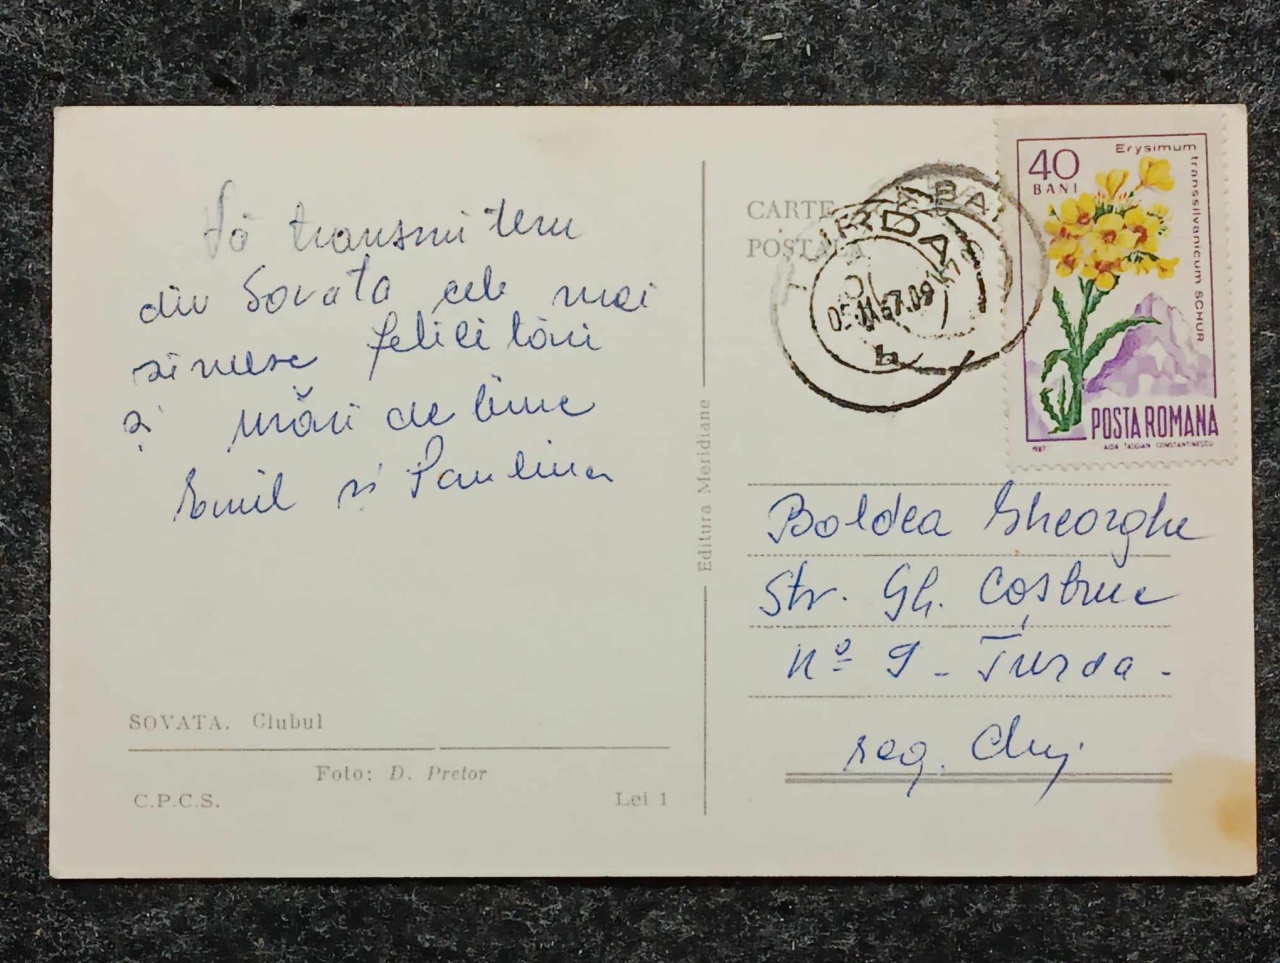 Vă transmitem
din Sovata cele mai
sincere felicitări
și urări de bine
Emil și Paulina
SOVATA. Clubul
Foto: D. Pretor
C.P.C.S.
Lei 1
Editura Meridiane
CARTE
POȘTALĂ
TURDA
40
BANI
Erysimum
transsilvanicum SCHUR
POSTA ROMANA
1967
AIDA TASGIAN CONSTANTINESCU
Boldea Gheorghe
Str. Gh. Coșbuc
Nº 9 - Turda -
reg. Cluj